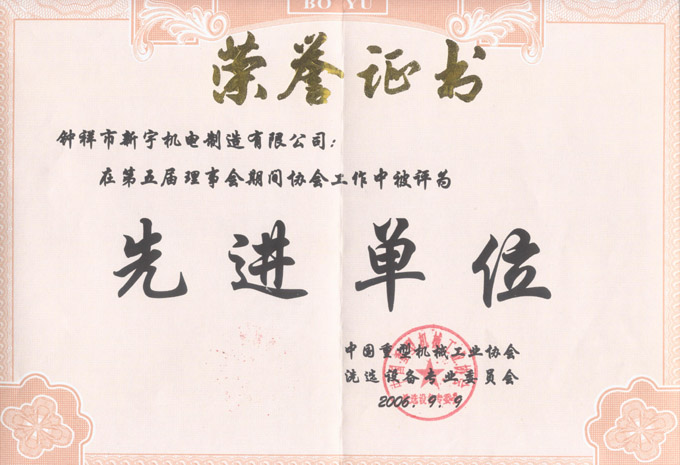 BO YU
荣誉证书
钟祥市新宇机电制造有限公司:
在第五届理事会期间协会工作中被评为
先进单位
中国重型机械工业协会
洗选设备专业委员会
2006.9.9